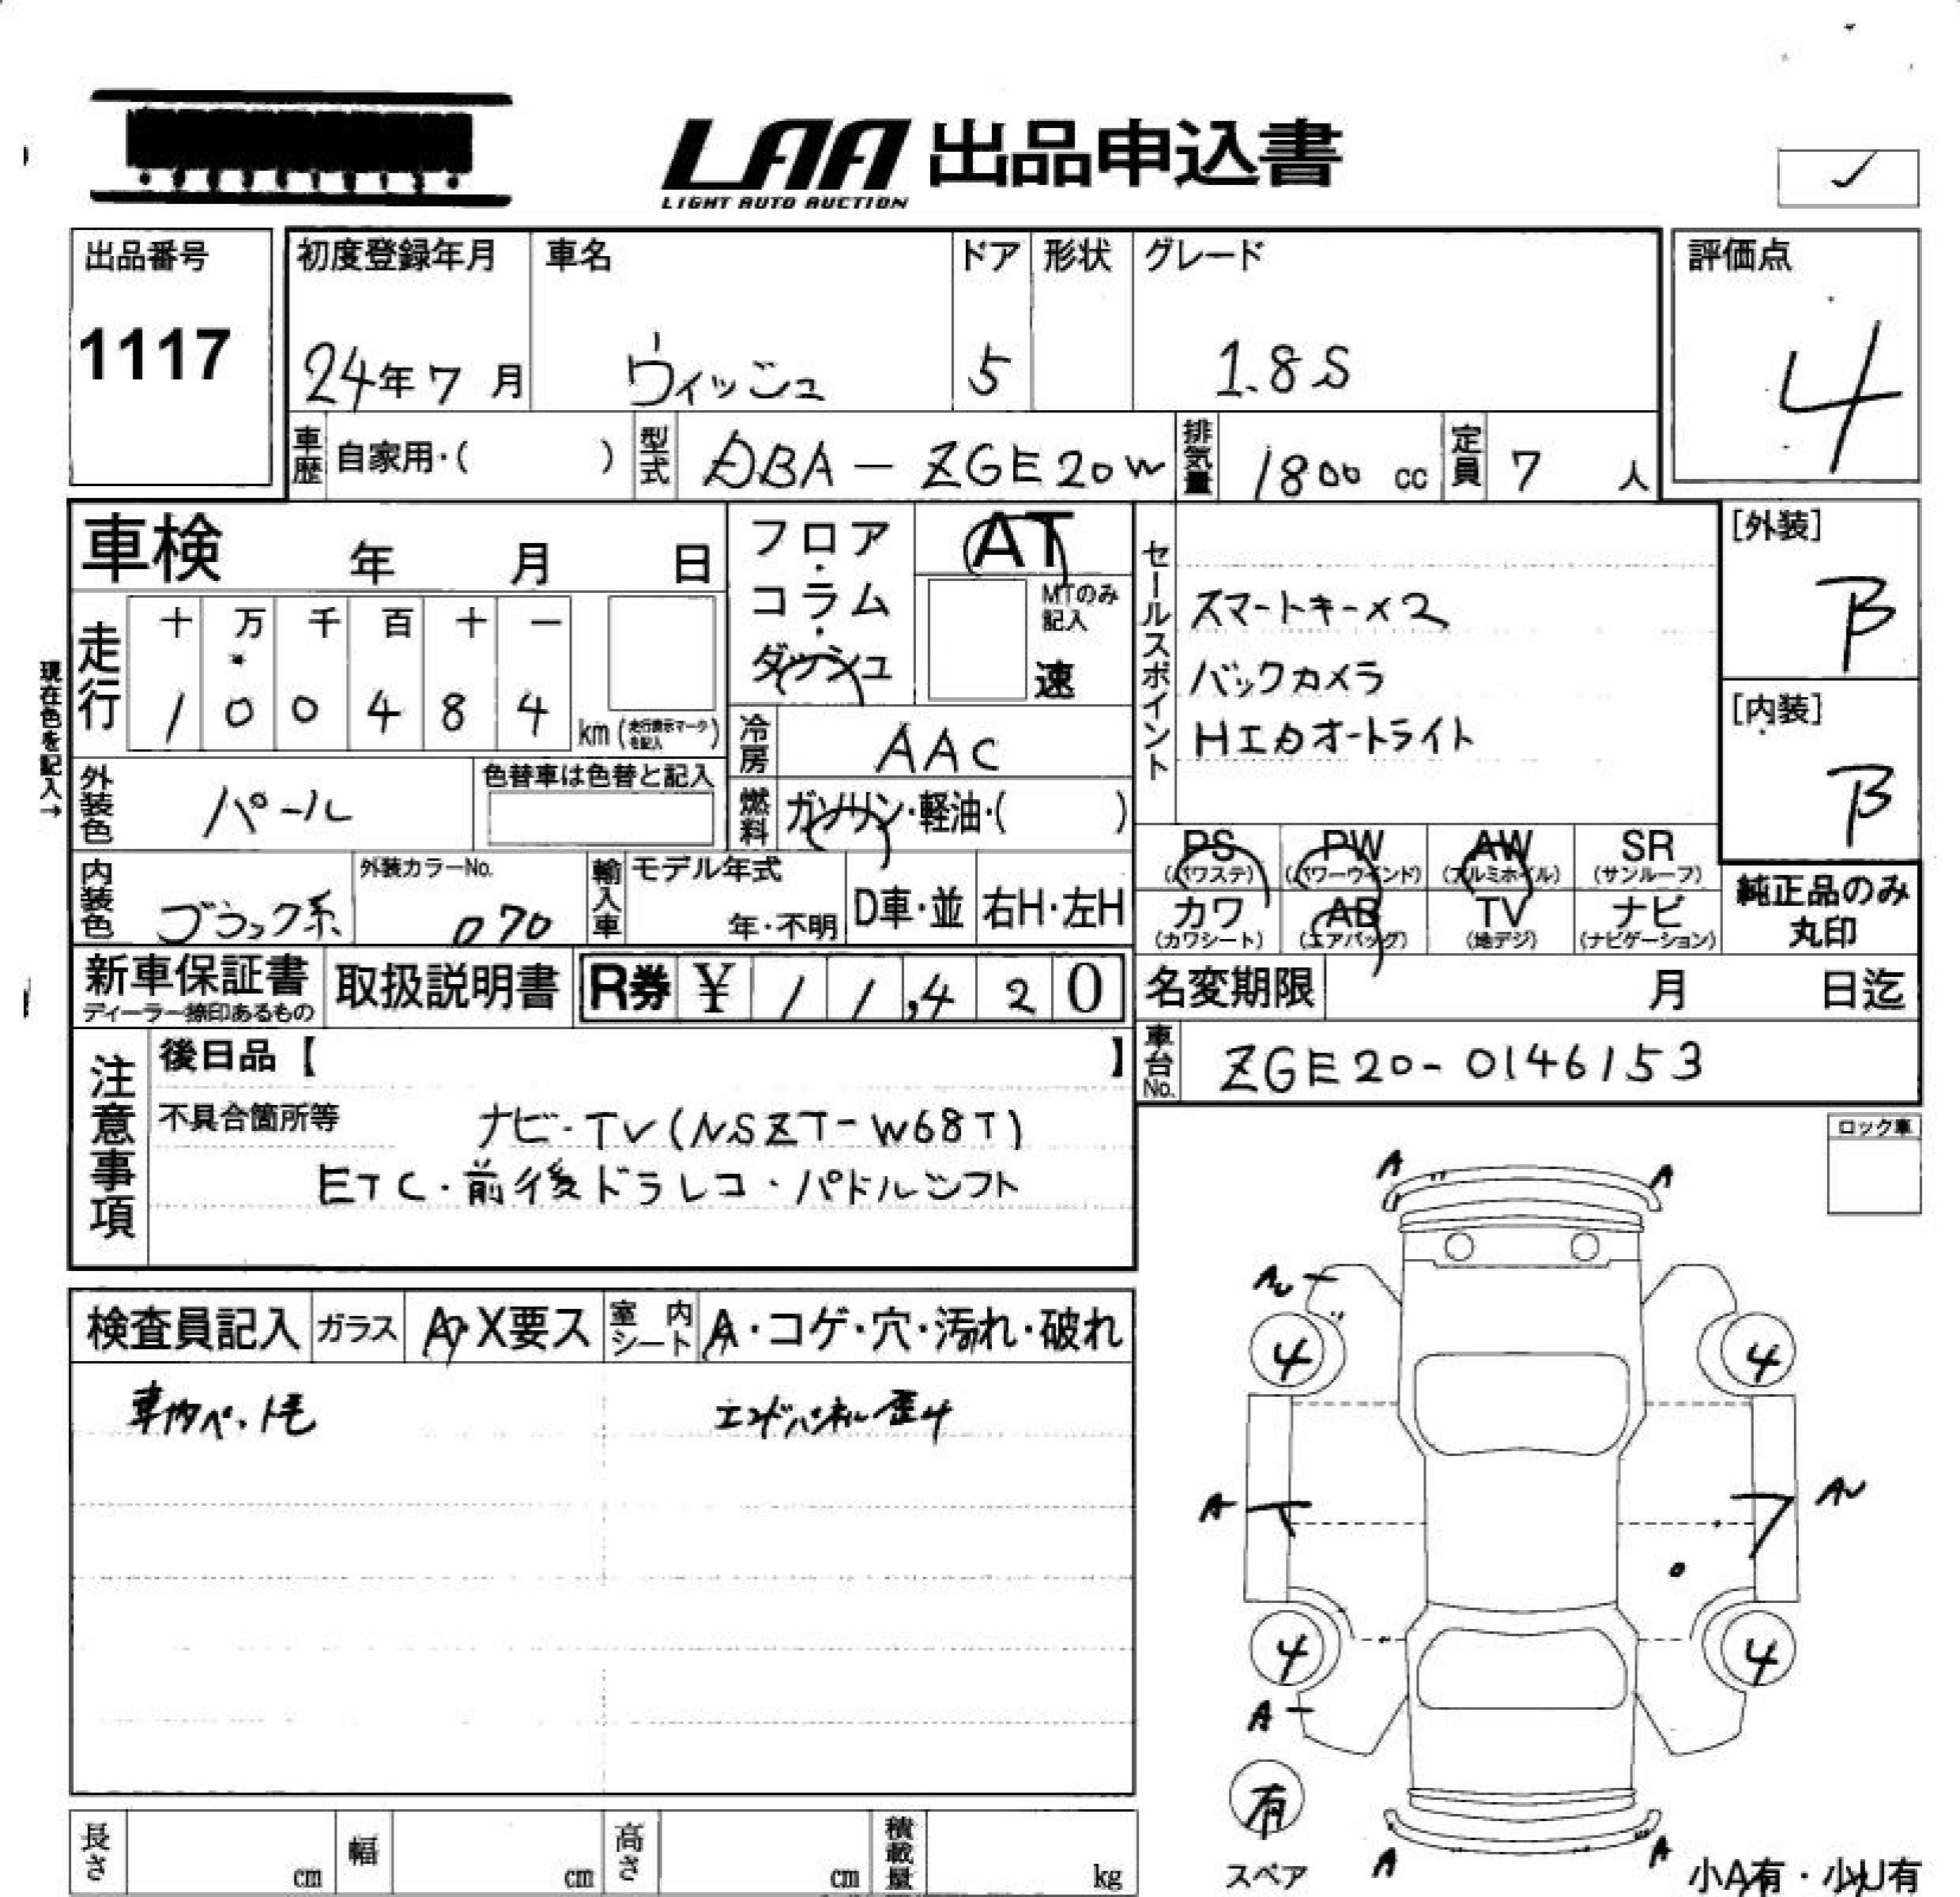 LAA 出品申込書
LIGHT AUTO AUCTION
出品番号 初度登録年月 車名 ドア 形状 グレード 評価点
1117 24年7月 ウィッシュ 5 1.8S 4
車歴 自家用・( ) 型式 DBA-ZGE20W 排気量 1800 cc 定員 7 人
車検 年 月 日
フロア・コラム・ダッシュ
AT
MTのみ記入
速
セールスポイント
スマートキー×2
バックカメラ
HIDオートライト
[外装]
B
[内装]
B
現在色を記入→
走行 十 万 千 百 十 一
1 0 0 4 8 4 km (走行表示マークを記入)
冷房 AAC
外装色 パール
色替車は色替と記入
燃料 ガソリン・軽油・( )
PS (パワステ) PW (パワーウインド) AW (アルミホイル) SR (サンルーフ)
カワ (カワシート) AB (エアバッグ) TV (地デジ) ナビ (ナビゲーション)
純正品のみ
丸印
内装色 ブラック系
外装カラーNo. 070
輸入車 モデル年式 年・不明 D車・並 右H・左H
新車保証書
ディーラー捺印あるもの
取扱説明書
R券 ¥ 11,420
名変期限 月 日迄
車台No. ZGE20-0146153
注意事項
後日品【 】
不具合箇所等 ナビ・TV(NSZT-W68T)
ETC・前後ドラレコ・パドルシフト
ロック車
検査員記入 ガラス A・X要ス 室内シート A・コゲ・穴・汚れ・破れ
車内ペット毛 エンドパネル歪み
A A
4 4
A
4 4
A
有
スペア
A A
小A有・小U有
長さ cm 幅 cm 高さ cm 積載量 kg